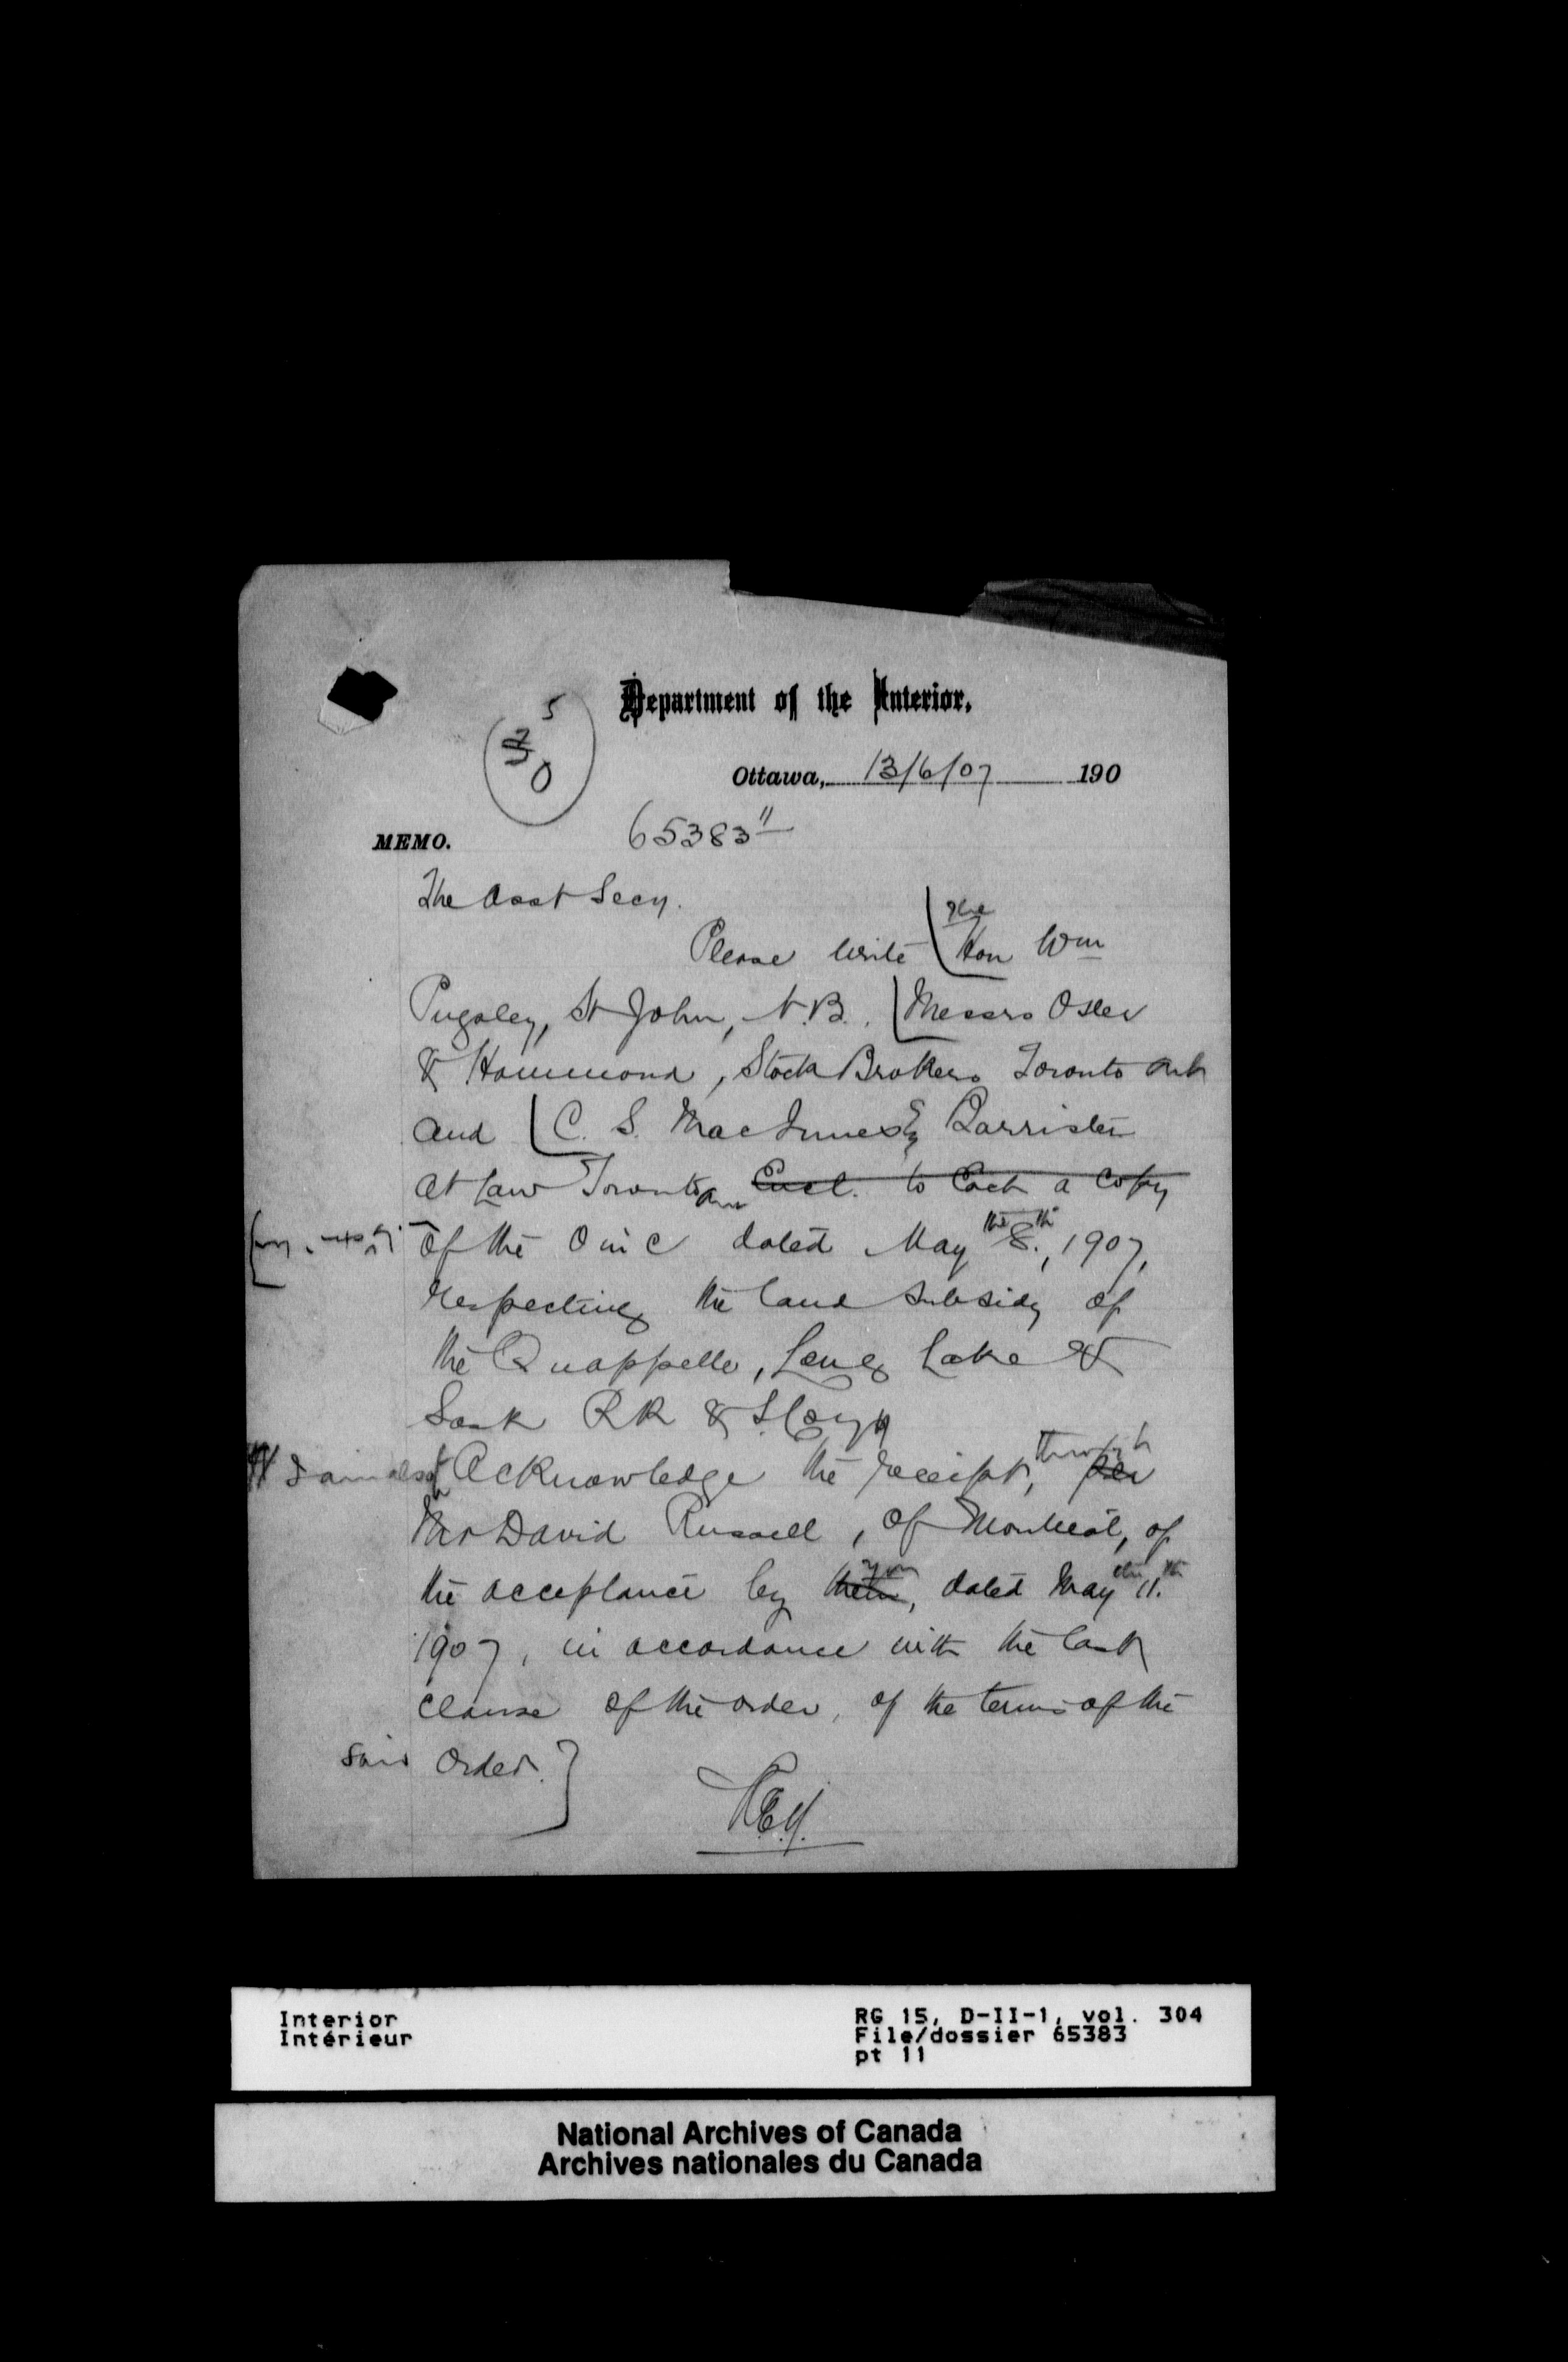 Department of the Interior.
5
0
Ottawa, 13/6/07 190
MEMO.
65383 11
The Asst Secy.
Please write The Hon Wm
Pugsley, St John, N.B., Messrs Osler
& Hammond, Stock Brokers Toronto Ont
and C. S. MacInnes Esq Barrister
at law Toronto Ont Encl. to Each a copy
of the O in C dated May the 8th, 1907,
respecting the land subsidy of
the Quappelle, Long Lake &
Sask RR & S Coy
I am also to Acknowledge the receipt, through per
Mr David Russell, of Montreal, of
the acceptance by them you, dated May the 11th
1907, in accordance with the last
clause of the order, of the terms of the
said Order.
Interior
Intérieur
RG 15, D-II-1, vol. 304
File/dossier 65383
pt 11
National Archives of Canada
Archives nationales du Canada